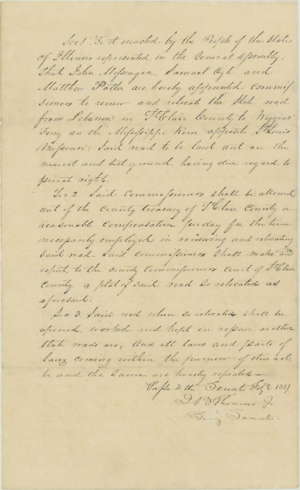 Sec 1 Be it enacted by the People of the State
of Illinois represented in the General Assembly,
That John Messenger, Samuel Ogle and
Matthew Patter are hereby appointed commis
sioners to review and relocate the State road
from Lebanon in St Clair County to Wiggins
Ferry on the Mississippi River opposite St Louis
Missouri. Said road to be laid out on the
nearest and best ground, having due regard to
private right.
Sec 2 Said Commissioners shall be allowed
out of the county treasury of St Clair County a
reasonable compensation per day for the time
necessarily employed in reviewing and relocating
said road. Said commissioners shall make and
report to the county Commissioners court of St Clair
County a plat of said road so relocated as
aforesaid.
Sec 3 Said road when so relocated shall be
opened worked and kept in repair as other
state roads are, And all laws and parts of
laws coming within the purview of this act
be and the same are hereby repealed—
Passed the Senate Feby 1837
Thomas Jr
Senate